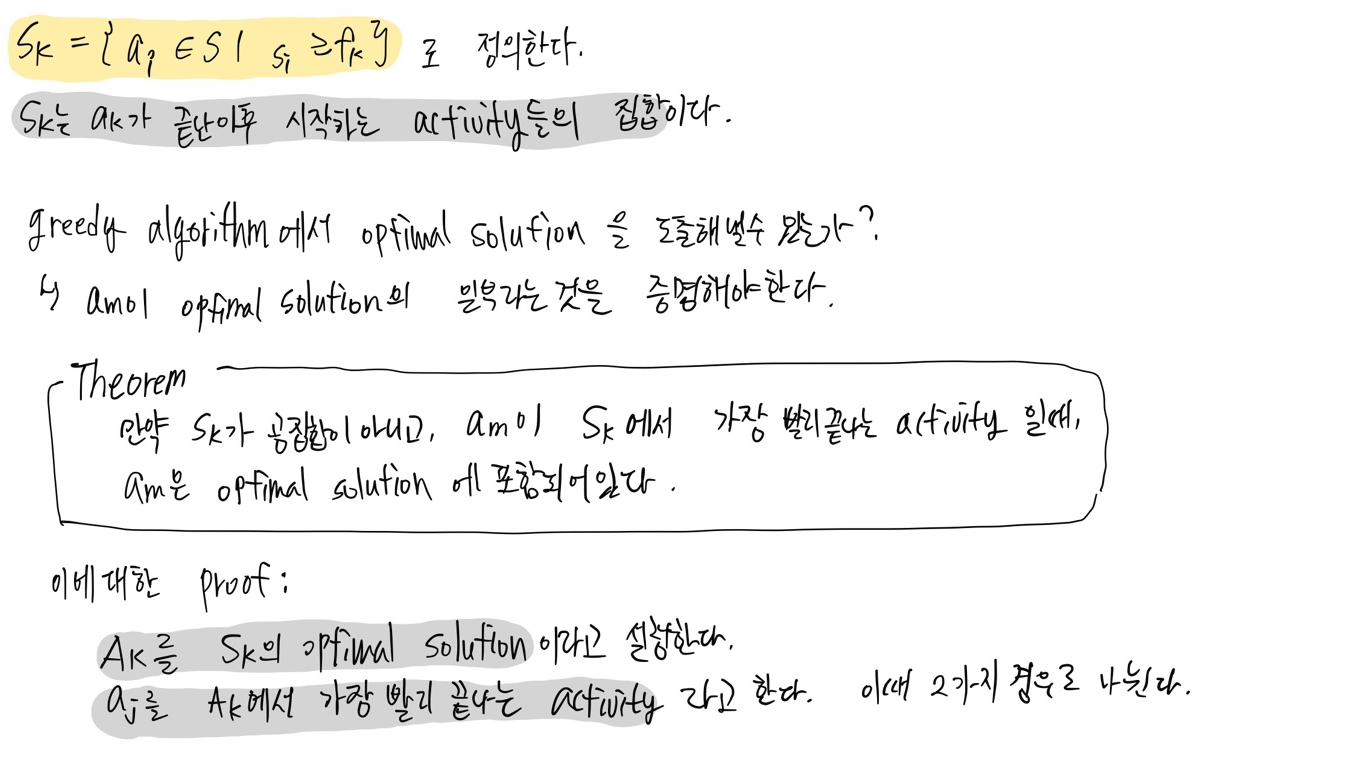 Sk = { ai ∈ S | si ≥ fk } 로 정의한다.
Sk는 ak가 끝난이후 시작하는 activity들의 집합이다.
greedy algorithm에서 optimal solution을 도출해낼수 있는가?
↳ am이 optimal solution의 일부라는 것을 증명해야한다.
Theorem
만약 Sk가 공집합이 아니고, am이 Sk에서 가장 빨리 끝나는 activity 일때,
am은 optimal solution에 포함되어있다.
이에 대한 proof:
Ak를 Sk의 optimal solution이라고 설정한다.
aj를 Ak에서 가장 빨리 끝나는 activity 라고 한다. 이때 2가지 경우로 나뉜다.